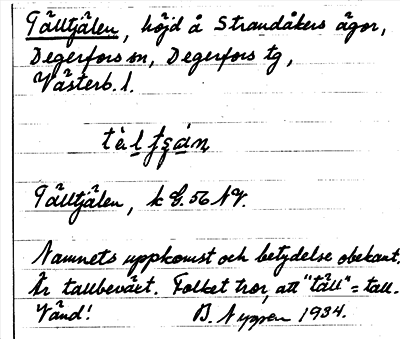 Tälltjälen, höjd å Strandåkers ägor,
Degerfors sn, Degerfors tg,
Västerb. l.
Tälltjälen, k G. 56 NV.
Namnets uppkomst och betydelse obekant.
Är tallbeväxt. Folket tror, att "täll" = tall.
Vänd! B. Nygren 1934.